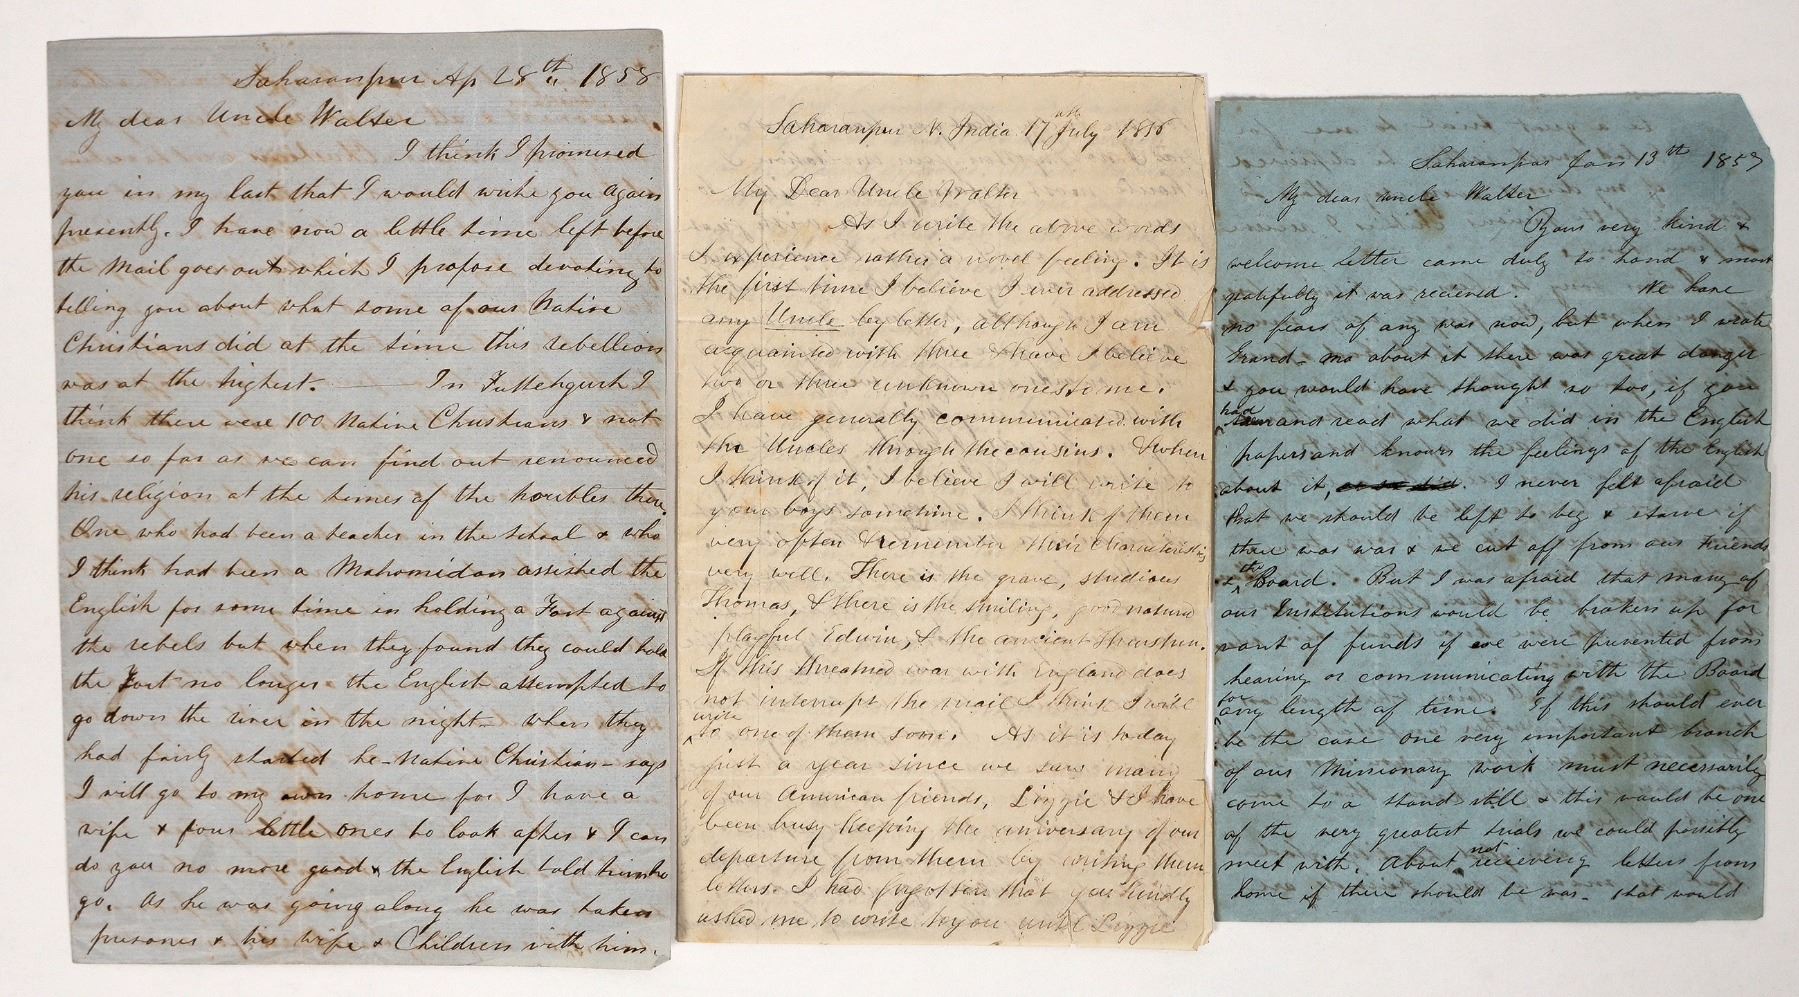 Saharanpur Ap 28th 1858
My dear Uncle Walter
I think I promised
you in my last that I would write you again
presently. I have now a little time left before
the mail goes out which I propose devoting to
telling you about what some of our Native
Christians did at the time this rebellion
was at the highest. In Futtehgurh I
think there were 100 Native Christians & not
one so far as we can find out renounced
his religion at the times of the troubles there.
One who had been a teacher in the school & who
I think had been a Mahomidan assisted the
English for some time in holding a Fort against
the rebels but when they found they could hold
the Fort no longer the English attempted to
go down the river in the night - when they
had fairly started he - Native Christian - says
I will go to my own home for I have a
wife & four little ones to look after & I can
do you no more good & the English told him to
go. As he was going along he was taken
prisoner & his wife & Children with him.
Saharanpur N. India 17th July 1856
My Dear Uncle Walter
As I write the above words
I experience rather a novel feeling. It is
the first time I believe I ever addressed
any Uncle by letter, although I am
acquainted with three & have I believe
two or three unknown ones to me.
I have generally communicated with
the Uncles through the cousins. & when
I think of it, I believe I will write to
your boys sometime. I think of them
very often & remember their characteristics
very well. There is the grave, studious
Thomas, & there is the smiling, good natured
playful Edwin, & the ancient Thurston.
If this threatened war with England does
not interrupt the mail I think I will
write
to one of them soon. As it is today
just a year since we saw many
of our American friends, Lizzie & I have
been busy keeping the aniversary of our
departure from them by writing them
letters. I had forgotten that you kindly
asked me to write to you until Lizzie
Saharanpur Jan 13th 1857
My dear uncle Walter
Your very kind &
welcome letter came duly to hand & most
gratifully it was recieved. We have
no fears of any war now, but when I wrote
Grand-ma about it there was great danger
& you would have thought so too, if you
had
and read what we did in the English
papers and known the feelings of the English
about it, I never felt afraid
that we should be left to beg & starve if
there was war & we cut off from our friends
& the Board. But I was afraid that many of
our Institutions would be broken up for
want of funds if we were prevented from
hearing or communicating with the Board
for
any length of time. If this should ever
be the case one very important branch
of our Missionary work must necessarily
come to a stand still & this would be one
of the very greatest trials we could possibly
meet with. About not recieving letters from
home if there should be war - that would